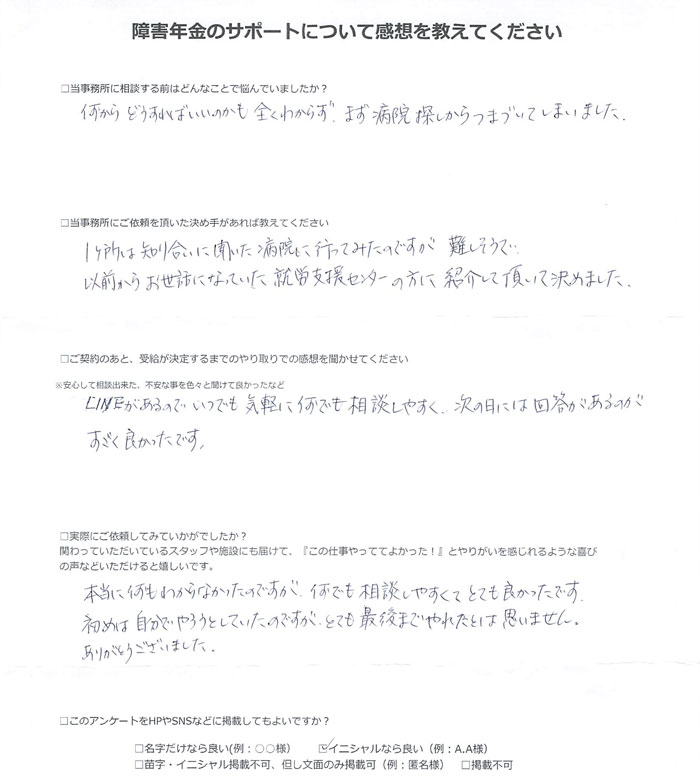 障害年金のサポートについて感想を教えてください
□当事務所に相談する前はどんなことで悩んでいましたか？
何から どうすればいいのかも 全くわからず、まず 病院 探しからつまづいてしまいました。
□当事務所にご依頼を頂いた決め手があれば教えてください
1ヶ所は 知り合いに 聞いた 病院に 行ってみたのですが 難しそうで…
以前から お世話になっていた 就労支援センターの方に 紹介して頂いて決めました。
□ご契約のあと、受給が決定するまでのやり取りでの感想を聞かせてください
※安心して相談出来た、不安な事を色々と聞けて良かったなど
LINEがあるので いつでも 気軽に 何でも 相談しやすく、次の日には 回答があるのが
すごく 良かったです。
□実際にご依頼してみていかがでしたか？
関わっていただいているスタッフや施設にも届けて、『この仕事やっててよかった！』とやりがいを感じれるような喜び
の声などいただけると嬉しいです。
本当に 何も わからなかったのですが、何でも 相談しやすくて とても 良かったです。
初めは 自分で やろうとしていたのですが、とても 最後まで やれたとは 思いません。
ありがとうございました。
□このアンケートをHPやSNSなどに掲載してもよいですか？
□名字だけなら良い(例：○○様) ☑イニシャルなら良い（例：A.A様）
□苗字・イニシャル掲載不可、但し文面のみ掲載可（例：匿名様） □掲載不可